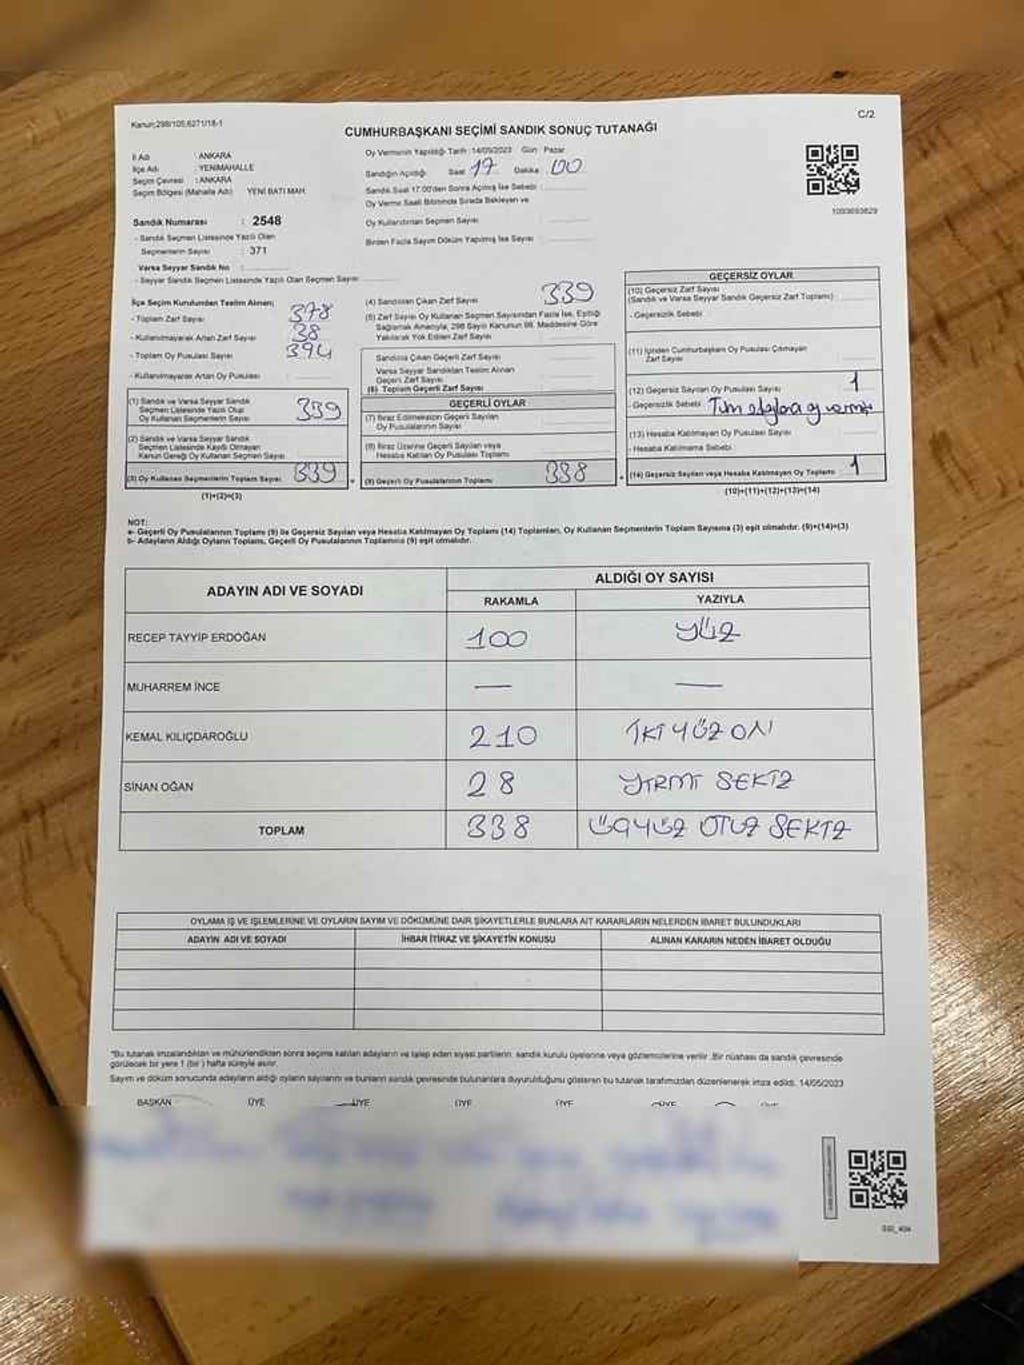 Kanun;298/105,6271/18-1
C/2
CUMHURBAŞKANI SEÇİMİ SANDIK SONUÇ TUTANAĞI
İl Adı : ANKARA
İlçe Adı : YENİMAHALLE
Seçim Çevresi : ANKARA
Seçim Bölgesi (Mahalle Adı) YENİ BATI MAH.
Sandık Numarası : 2548
- Sandık Seçmen Listesinde Yazılı Olan
Seçmenlerin Sayısı : 371
Varsa Seyyar Sandık No :
- Seyyar Sandık Seçmen Listesinde Yazılı Olan Seçmen Sayısı
Oy Vermenin Yapıldığı Tarih :14/05/2023 Gün : Pazar
Sandığın Açıldığı Saat 17 Dakika :00
Sandık Saat 17.00'den Sonra Açılmış İse Sebebi :
Oy Verme Saati Bitiminde Sırada Bekleyen ve
Oy Kullandırılan Seçmen Sayısı
Birden Fazla Sayım Döküm Yapılmış İse Sayısı
1093693829
İlçe Seçim Kurulundan Teslim Alınan;
- Toplam Zarf Sayısı 378
- Kullanılmayarak Artan Zarf Sayısı 38
- Toplam Oy Pusulası Sayısı 394
- Kullanılmayarak Artan Oy Pusulası
(1) Sandık ve Varsa Seyyar Sandık
Seçmen Listesinde Yazılı Olup
Oy Kullanan Seçmenlerin Sayısı 339
(2) Sandık ve Varsa Seyyar Sandık
Seçmen Listesinde Kaydı Olmayan
Kanun Gereği Oy Kullanan Seçmen Sayısı
(3) Oy Kullanan Seçmenlerin Toplam Sayısı 339
(1)+(2)=(3)
(4) Sandıktan Çıkan Zarf Sayısı 339
(5) Zarf Sayısı Oy Kullanan Seçmen Sayısından Fazla İse, Eşitliği
Sağlamak Amacıyla, 298 Sayılı Kanunun 98. Maddesine Göre
Yakılarak Yok Edilen Zarf Sayısı
Sandıkta Çıkan Geçerli Zarf Sayısı
Varsa Seyyar Sandıktan Teslim Alınan
Geçerli Zarf Sayısı
(6) Toplam Geçerli Zarf Sayısı
GEÇERLİ OYLAR
(7) İtiraz Edilmeksizin Geçerli Sayılan
Oy Pusulalarının Sayısı
(8) İtiraz Üzerine Geçerli Sayılan veya
Hesaba Katılan Oy Pusulası Toplamı
(9) Geçerli Oy Pusulalarının Toplamı 338
GEÇERSİZ OYLAR
(10) Geçersiz Zarf Sayısı
(Sandık ve Varsa Seyyar Sandık Geçersiz Zarf Toplamı)
- Geçersizlik Sebebi
(11) İçinden Cumhurbaşkanı Oy Pusulası Çıkmayan
Zarf Sayısı
(12) Geçersiz Sayılan Oy Pusulası Sayısı 1
- Geçersizlik Sebebi Tüm adaylara oy vermiş
(13) Hesaba Katılmayan Oy Pusulası Sayısı
- Hesaba Katılmama Sebebi
(14) Geçersiz Sayılan veya Hesaba Katılmayan Oy Toplamı 1
(10)+(11)+(12)+(13)=(14)
NOT:
a- Geçerli Oy Pusulalarının Toplamı (9) ile Geçersiz Sayılan veya Hesaba Katılmayan Oy Toplamı (14) Toplamları, Oy Kullanan Seçmenlerin Toplam Sayısına (3) eşit olmalıdır. (9)+(14)=(3)
b- Adayların Aldığı Oyların Toplamı, Geçerli Oy Pusulalarının Toplamına (9) eşit olmalıdır.
ADAYIN ADI VE SOYADI
ALDIĞI OY SAYISI
RAKAMLA
YAZIYLA
RECEP TAYYİP ERDOĞAN 100 YÜZ
MUHARREM İNCE — —
KEMAL KILIÇDAROĞLU 210 İKİ YÜZ ON
SİNAN OĞAN 28 YİRMİ SEKİZ
TOPLAM 338 ÜÇYÜZ OTUZ SEKİZ
OYLAMA İŞ VE İŞLEMLERİNE VE OYLARIN SAYIM VE DÖKÜMÜNE DAİR ŞİKAYETLERLE BUNLARA AİT KARARLARIN NELERDEN İBARET BULUNDUKLARI
ADAYIN ADI VE SOYADI
İHBAR İTİRAZ VE ŞİKAYETİN KONUSU
ALINAN KARARIN NEDEN İBARET OLDUĞU
"Bu tutanak imzalandıktan ve mühürlendikten sonra seçime katılan adayların ve talep eden siyasi partilerin sandık kurulu üyelerine veya gözlemcilerine verilir. Bir nüshası da sandık çevresinde
görülecek bir yere 1 (bir) hafta süreyle asılır.
Sayım ve döküm sonucunda adayların aldığı oyların sayılarını ve bunların sandık çevresinde bulunanlara duyurulduğunu gösteren bu tutanak tarafımızdan düzenlenerek imza edildi. 14/05/2023
BAŞKAN ÜYE ÜYE ÜYE ÜYE ÜYE